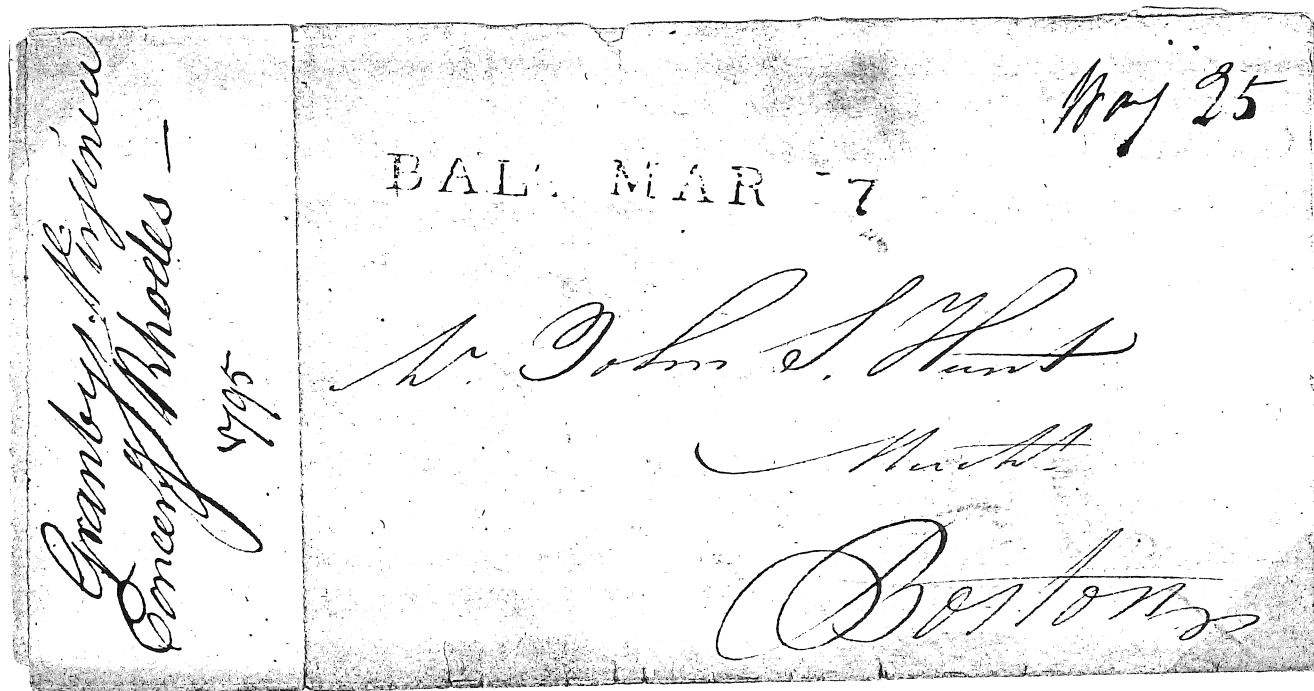 Granby. Virginia
Concerng Rhodes —
1795
Way 25
BALT. MAR 7
Mr. John S. Hunt
Mercht.
Boston